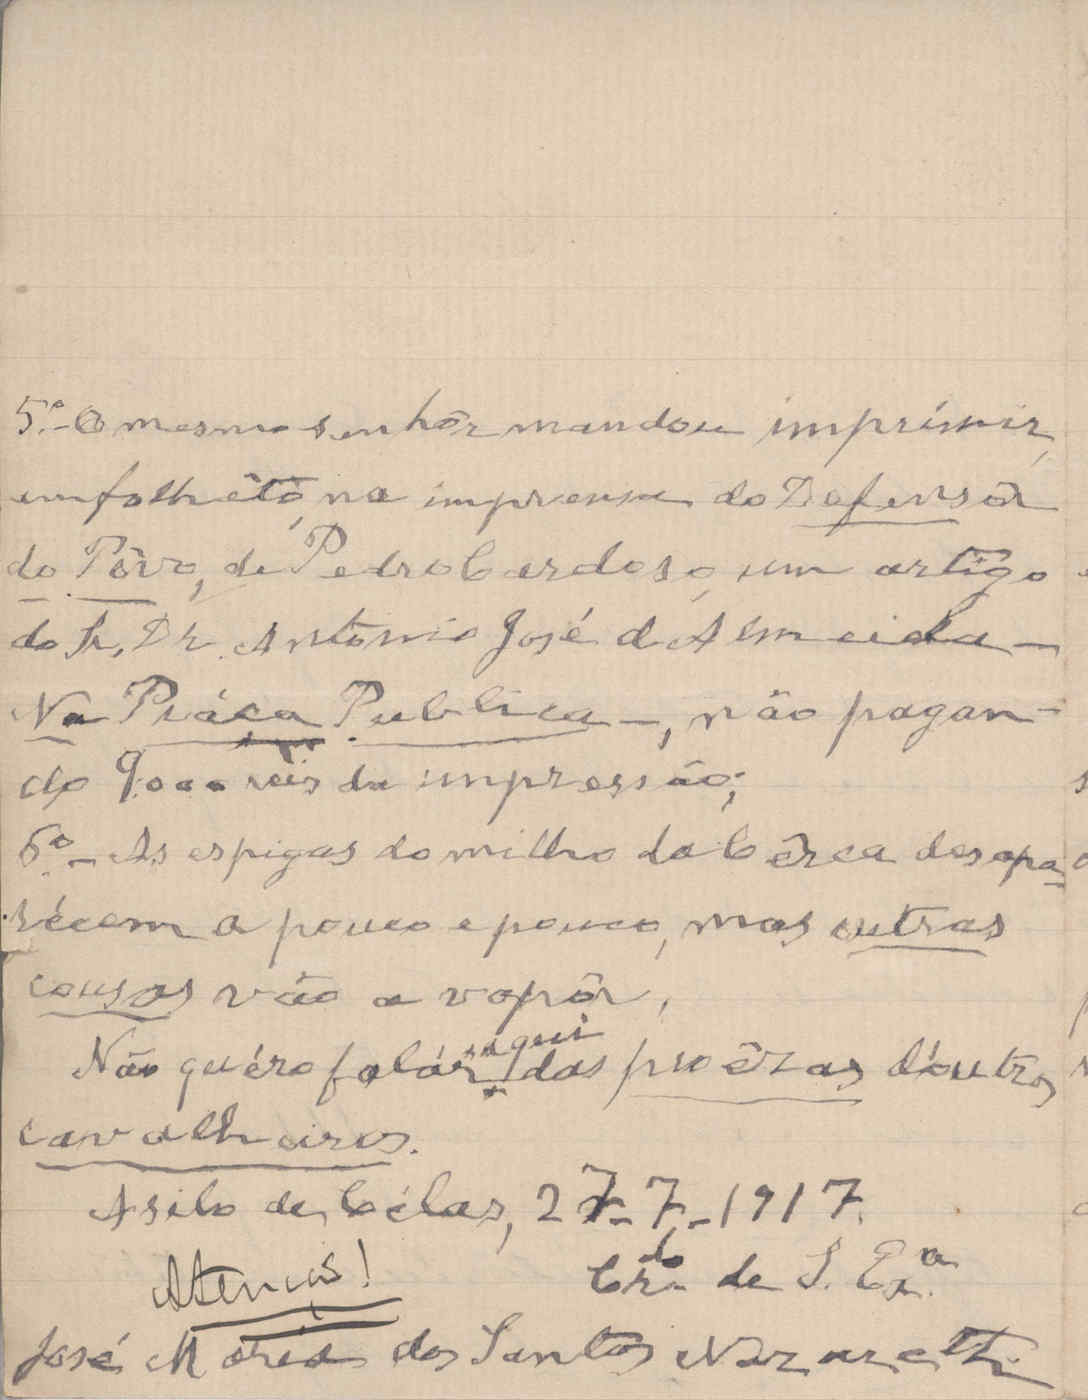 5.º-O mesmo senhôr mandou imprímir,
em folhêto, na imprensa do Defensôr
do Pôvo, de Pedro Cardoso, um artigo
do Sr. Dr. Antonio José d'Almeida —
Na Práça Publica —, não pagan-
do 9.000 réis da impressão;
6.º- As espigas do milho da Cêrca desapa-
récem a pouco e pouco, mas outras
cousas vão a vapôr.
Não quéro falár aqui das proêzas d'outros
cavalheiros.
Asilo de Célas, 27-7-1917.
Crdo. de S. Exa.
José Maria dos Santos Nazareth